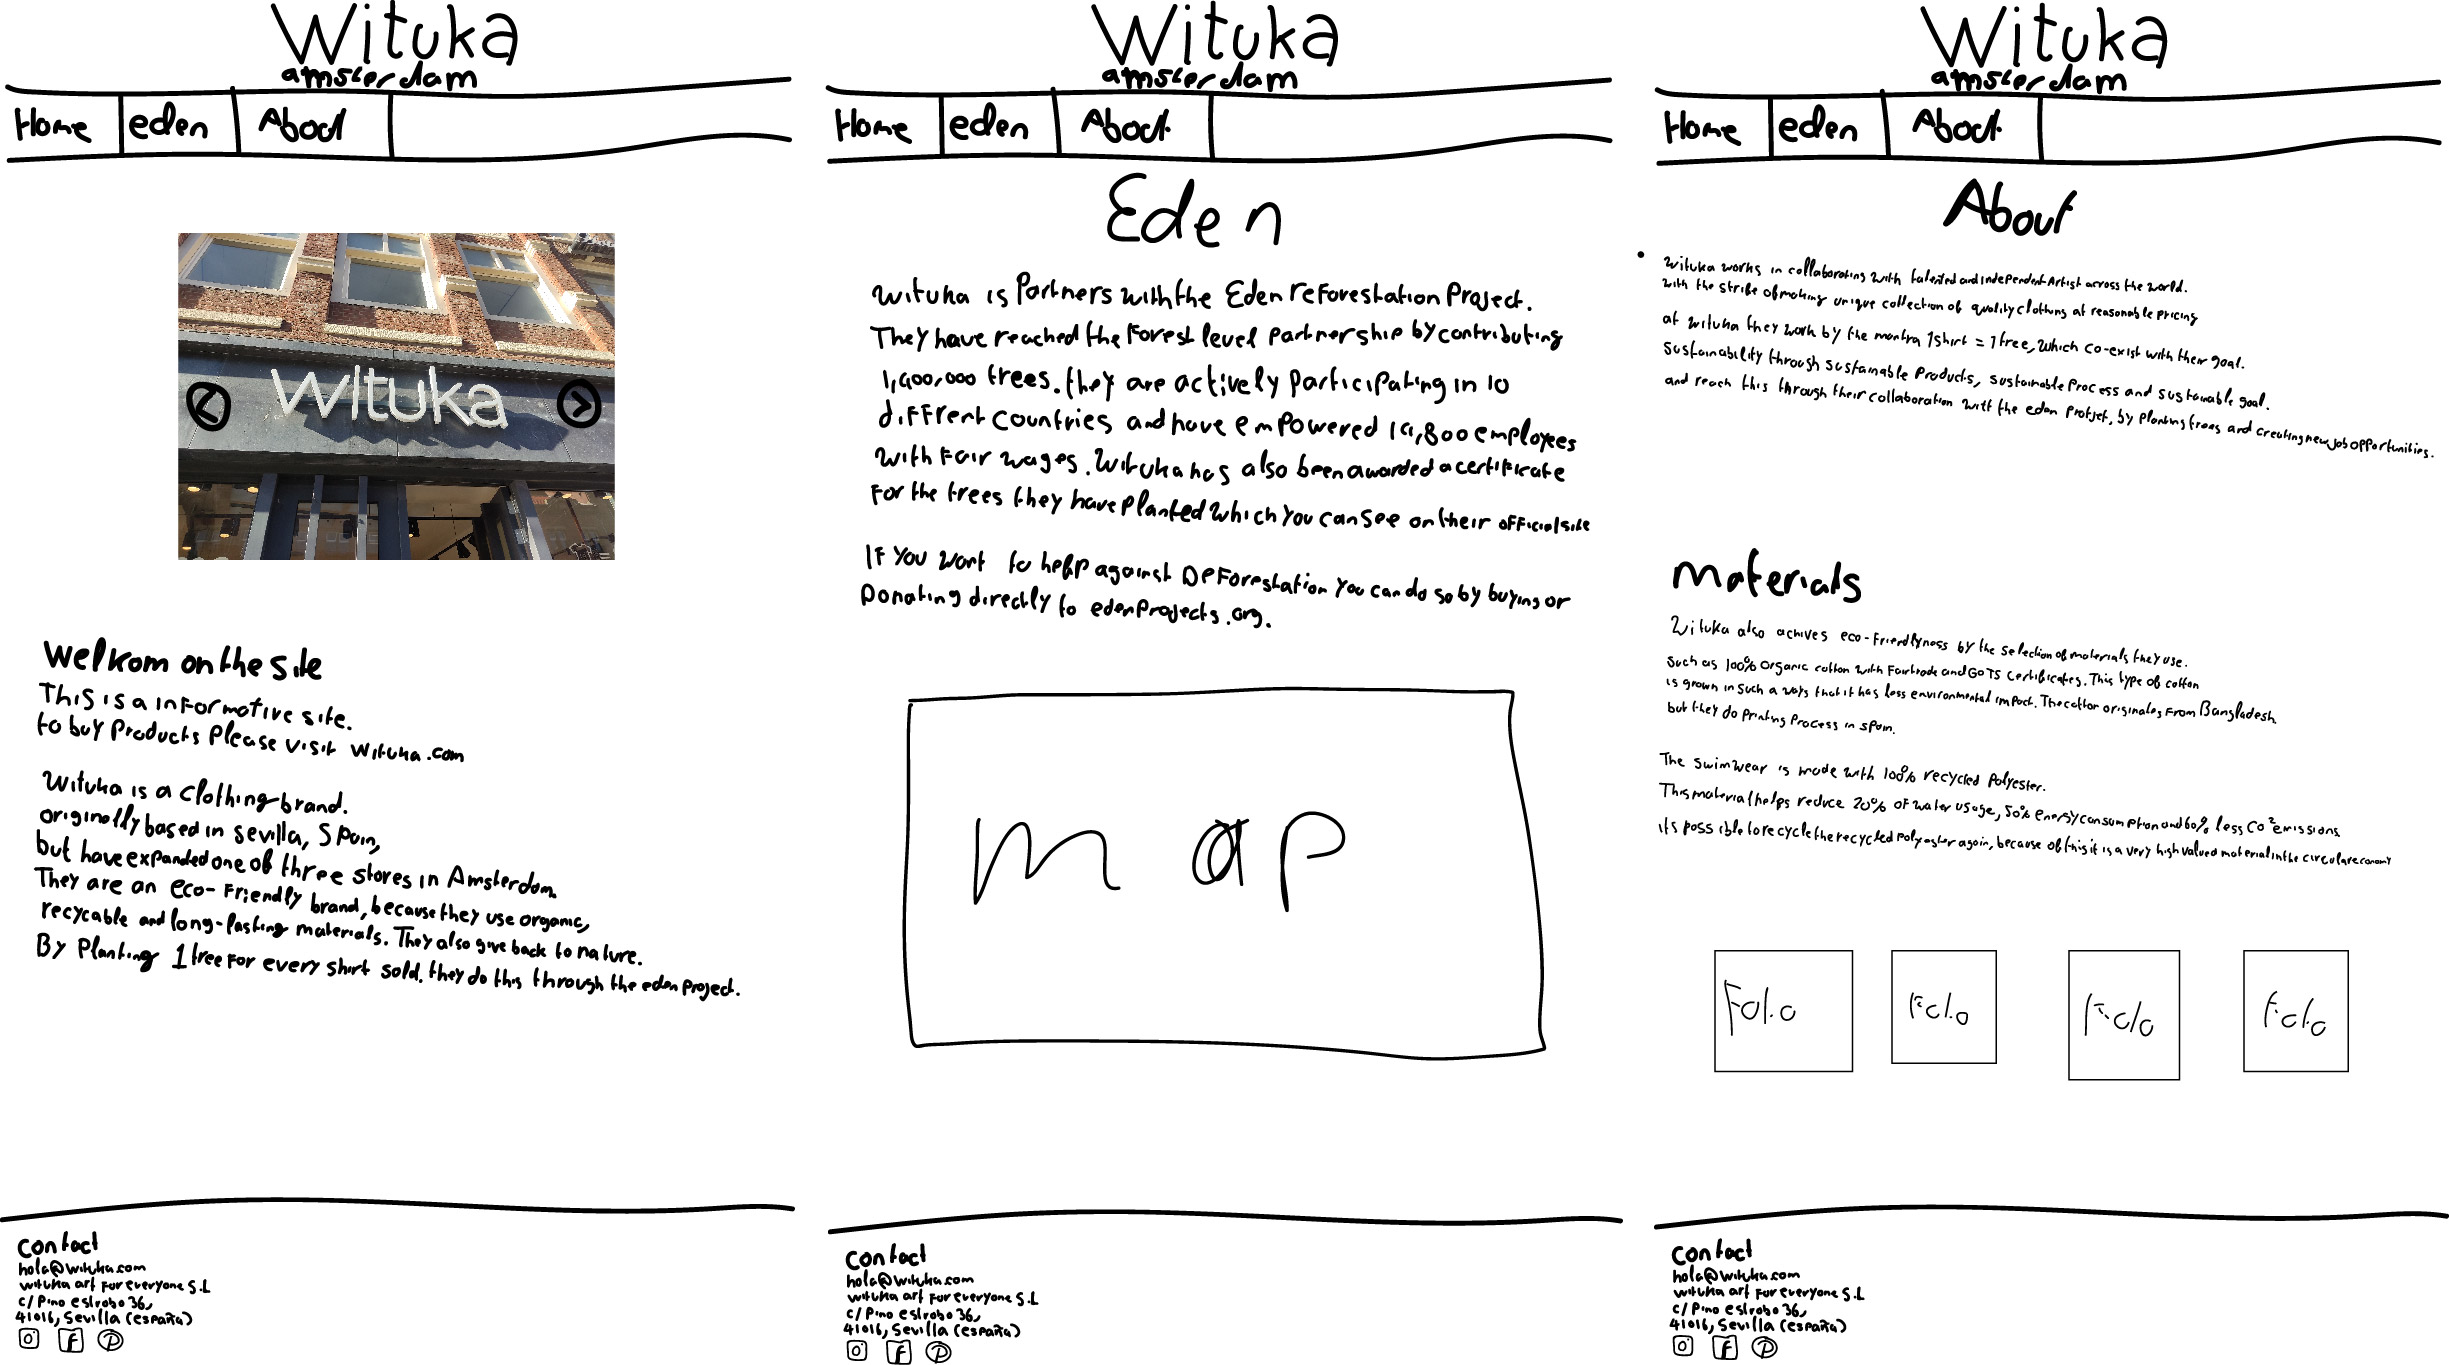 Wituka
amsterdam
Home
eden
About
wituka
Welkom on the site
This is a informative site.
to buy Products Please visit wituka.com
Wituka is a clothing brand.
originally based in Sevilla, Spain,
but have expanded one of three stores in Amsterdam.
They are an eco-Friendly brand, because they use organic,
recycable and long-lasting materials. They also give back to nature.
By Planting 1 tree For every shirt sold. they do this through the eden project.
Contact
hola@wituka.com
wituka art For everyone S.L
c/ Pino estrobo 36,
41016, Sevilla (españa)
Wituka
amsterdam
Home
eden
About
Eden
Wituka is Partners with the Eden reforestation Project.
They have reached the Forest level partnership by contributing
1,400,000 trees. they are actively participating in 10
diffrent countries and have empowered 14,800 employees
with Fair wages. Wituka has also been awarded a certificate
For the trees they have planted which you can see on their official site
If you want to help against Deforestation you can do so by buying or
Donating directly to edenprojects.org.
map
Contact
hola@wituka.com
wituka art For everyone S.L
c/ Pino estrobo 36,
41016, Sevilla (españa)
Wituka
amsterdam
Home
eden
About
About
Wituka works in collaborating with talented and independent Artist across the world.
with the stribe of making unique collection of quality clothing at reasonable pricing
at wituka they work by the mantra 1 shirt = 1 tree, which co-exist with their goal.
Sustainability through sustainable Products, sustainable Process and sustainable goal.
and reach this through their collaboration with the eden Protjet, by planting trees and creating new job opportunities.
Materials
Wituka also achives eco-Friendlyness by the selection of materials they use.
Such as 100% Organic cotton with Fairtrade and GOTS Certificates. This type of cotton
is grown in such a ways that it has less environmental impact. The cotton originates From Bangladesh.
but they do Printing Process in Spain.
The swimwear is made with 100% recycled Polyester.
This material helps reduce 20% of water usage, 50% energy consumption and 60% less CO² emissions.
it's possible to recycle the recycled Polyester again, because of this it is a very high valued material in the circular economy
Foto
Foto
Foto
Foto
Contact
hola@wituka.com
wituka art For everyone S.L
c/ Pino estrobo 36,
41016, Sevilla (españa)